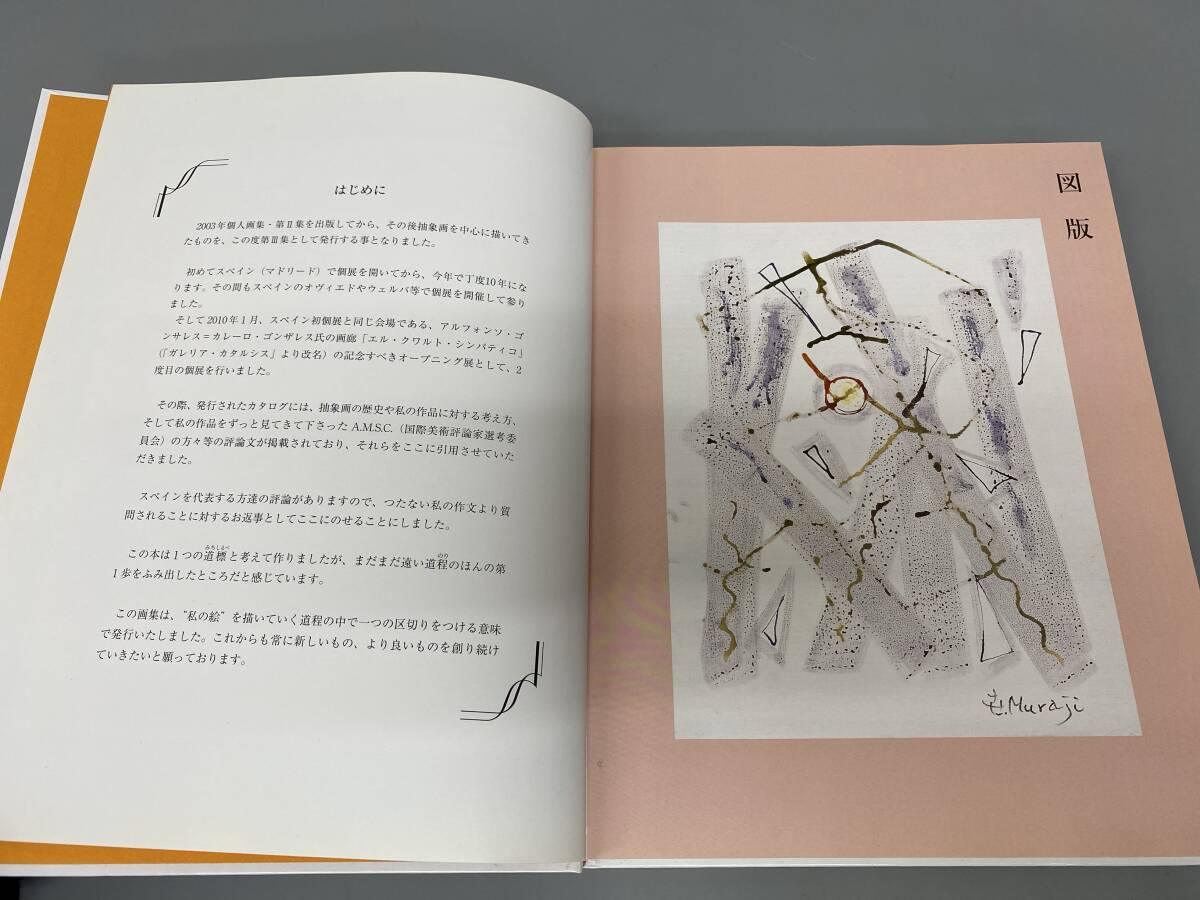 はじめに
2003年個人画集・第Ⅱ集を出版してから、その後抽象画を中心に描いてき
たものを、この度第Ⅲ集として発行する事となりました。
初めてスペイン（マドリード）で個展を開いてから、今年で丁度10年にな
ります。その間もスペインのオヴィエドやウェルバ等で個展を開催して参り
ました。
そして2010年1月、スペイン初個展と同じ会場である、アルフォンソ・ゴ
ンサレス＝カレーロ・ゴンザレス氏の画廊「エル・クワルト・シンパティコ」
（「ガレリア・カタルシス」より改名）の記念すべきオープニング展として、2
度目の個展を行いました。
その際、発行されたカタログには、抽象画の歴史や私の作品に対する考え方、
そして私の作品をずっと見てきて下さった A.M.S.C.（国際美術評論家選考委
員会）の方々等の評論文が掲載されており、それらをここに引用させていた
だきました。
スペインを代表する方達の評論がありますので、つたない私の作文より質
問されることに対するお返事としてここにのせることにしました。
この本は1つの道標と考えて作りましたが、まだまだ遠い道程のほんの第
みちしるべ
のり
1歩をふみ出したところだと感じています。
この画集は、"私の絵"を描いていく道程の中で一つの区切りをつける意味
で発行いたしました。これからも常に新しいもの、より良いものを創り続け
ていきたいと願っております。
図版
Muraji